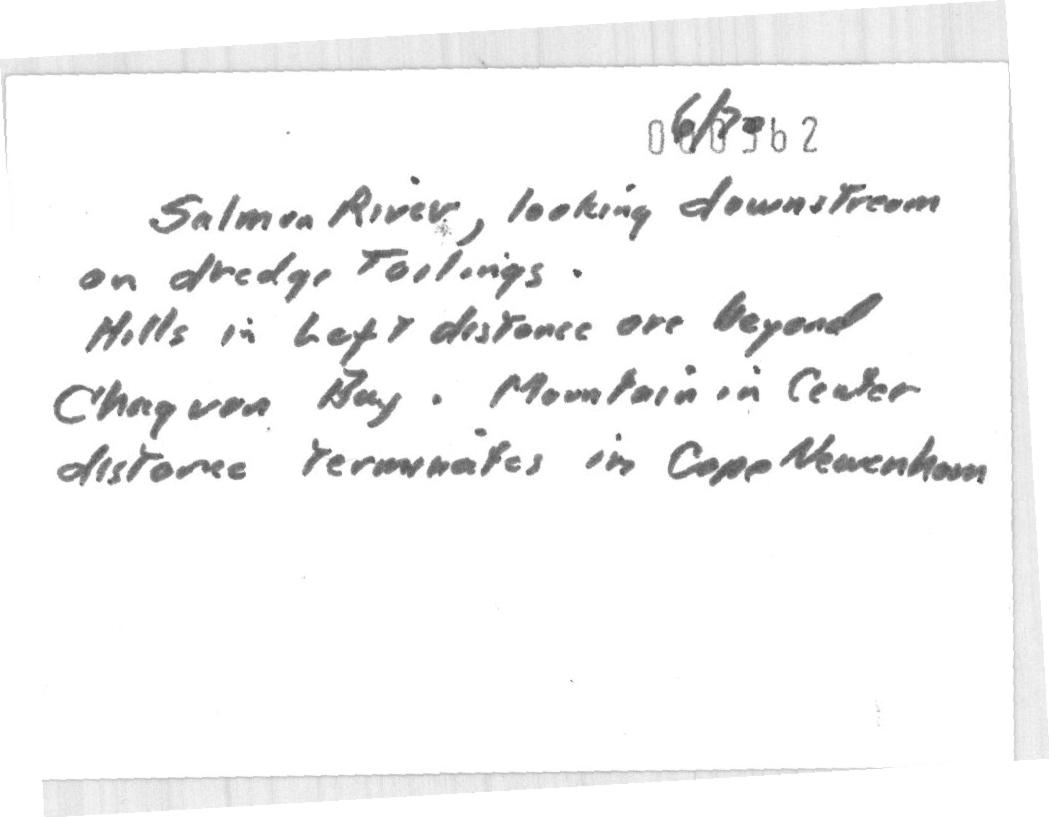 6/70
Salmon River, looking downstream
on dredge Tailings.
Hills in Left distance are beyond
Chagvan Bay. Mountain in Center
distance terminates in Cape Newenham